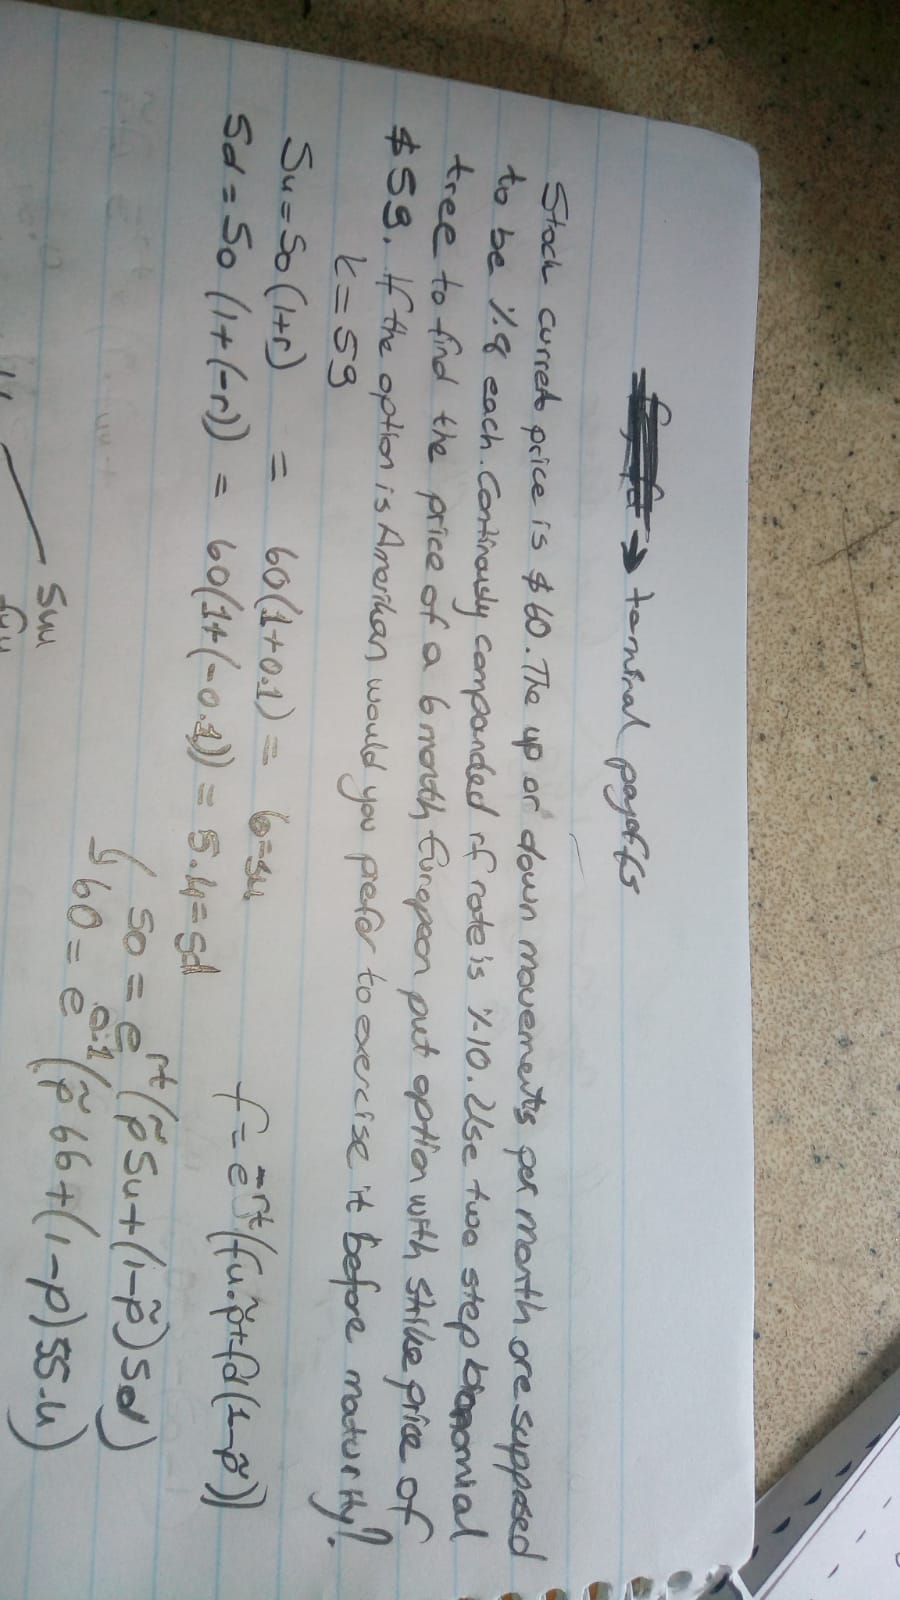 → terminal payoffs
Stock curret price is $60. The up or down movements per month are suppased
to be %8 each. Continously componded rf rate is %10. Use two step binomial
tree to find the price of a 6 month European put option with strike price of
$59. If the option is Amerikan would you prefer to exercise it before maturity?
k=59
Su=So(1+r) = 60(1+0.1) = 6=su
Sd=So(1+(-r)) = 60(1+(-0.1)) = 5.4=sd
f=e^-rt(fu.p̃+fd(1-p̃))
So=e^rt(p̃Su+(1-p̃)Sd)
↳ 60=e^0.1(p̃66+(1-p)55.4)
Suu
fuu